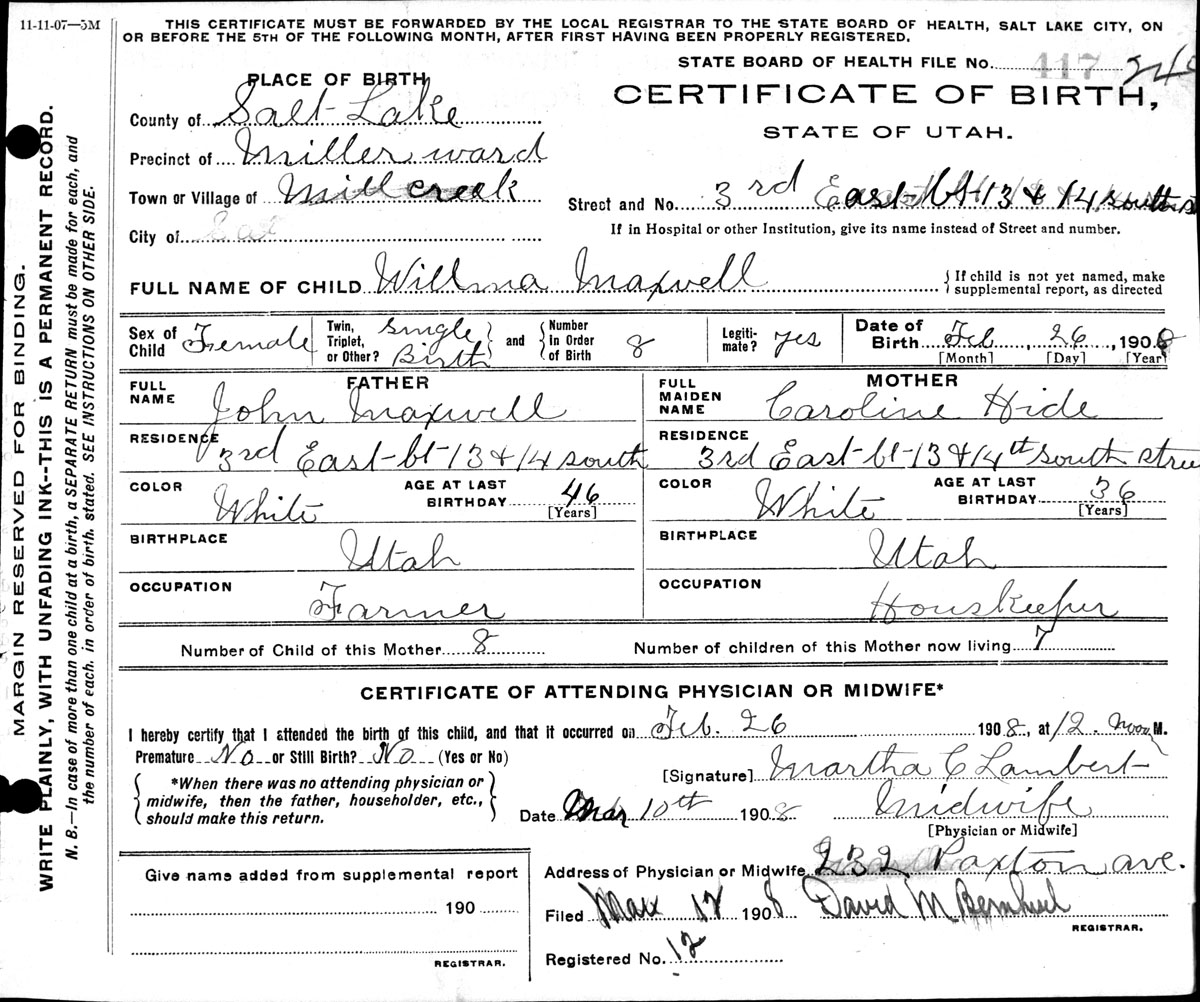 11-11-07—5M
THIS CERTIFICATE MUST BE FORWARDED BY THE LOCAL REGISTRAR TO THE STATE BOARD OF HEALTH, SALT LAKE CITY, ON
OR BEFORE THE 5TH OF THE FOLLOWING MONTH, AFTER FIRST HAVING BEEN PROPERLY REGISTERED.
STATE BOARD OF HEALTH FILE NO. 417
CERTIFICATE OF BIRTH,
STATE OF UTAH.
PLACE OF BIRTH
County of Salt Lake
Precinct of Miller ward
Town or Village of Mill creek
City of
Street and No. 3rd East bt 13 & 14 south
If in Hospital or other Institution, give its name instead of Street and number.
FULL NAME OF CHILD Willma Maxwell
{ If child is not yet named, make
supplemental report, as directed
Sex of Child Female
Twin, Triplet, or Other? Single Birth } and { Number In Order of Birth 8
Legiti-mate? yes
Date of Birth Feb, 26, 1908
[Month] [Day] [Year]
FATHER
FULL NAME John Maxwell
RESIDENCE 3rd East bt 13 & 14 south
COLOR White
AGE AT LAST BIRTHDAY 46 [Years]
BIRTHPLACE Utah
OCCUPATION Farmer
MOTHER
FULL MAIDEN NAME Caroline Hide
RESIDENCE 3rd East bt 13 & 14th south stree
COLOR White
AGE AT LAST BIRTHDAY 36 [Years]
BIRTHPLACE Utah
OCCUPATION Houskeeper
Number of Child of this Mother 8
Number of children of this Mother now living 7
CERTIFICATE OF ATTENDING PHYSICIAN OR MIDWIFE*
I hereby certify that I attended the birth of this child, and that it occurred on Feb. 26 1908, at 12. Noon M.
Premature No or Still Birth? No (Yes or No)
{ *When there was no attending physician or
midwife, then the father, householder, etc.,
should make this return. }
[Signature] Martha C Lambert
Date Mar 10th 1908
Midwife
[Physician or Midwife]
Address of Physician or Midwife 232 Paxton ave.
Filed Mar 12 1908 David M
REGISTRAR.
Registered No. 12
Give name added from supplemental report
190
REGISTRAR.
MARGIN RESERVED FOR BINDING.
WRITE PLAINLY, WITH UNFADING INK--THIS IS A PERMANENT RECORD.
N. B.—In case of more than one child at a birth, a SEPARATE RETURN must be made for each, and
the number of each, in order of birth, stated. SEE INSTRUCTIONS ON OTHER SIDE.